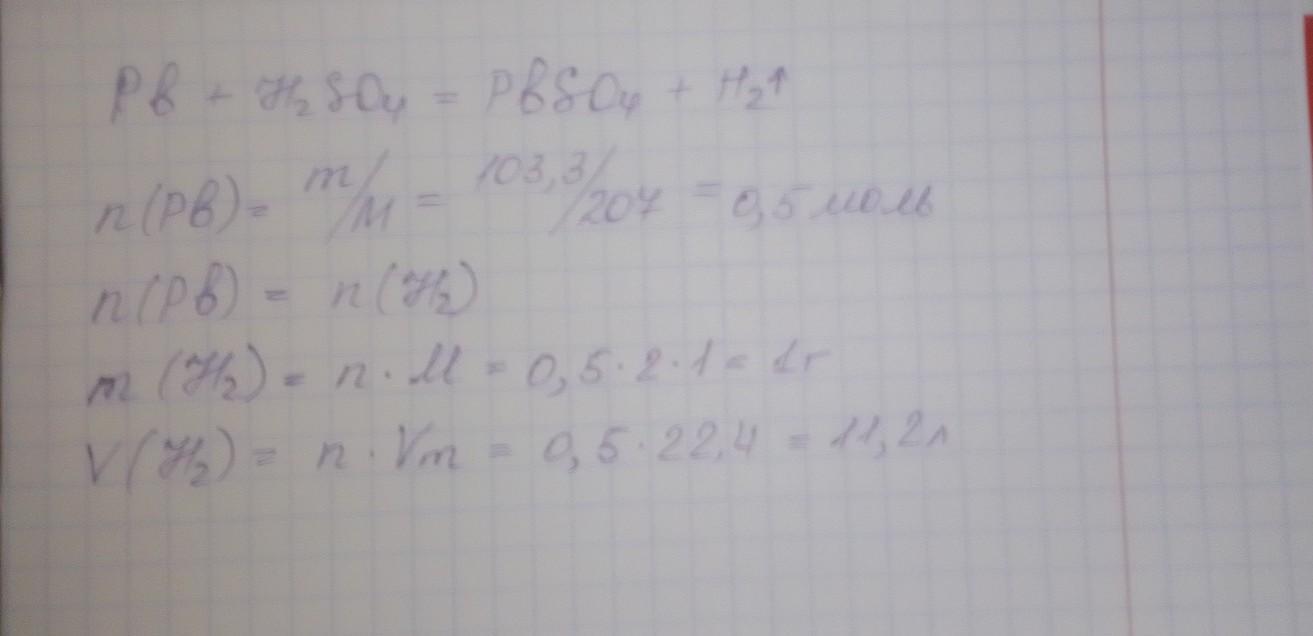 Pb + H₂SO₄ = PbSO₄ + H₂↑
n(Pb) = m/M = 103,3/207 = 0,5 моль
n(Pb) = n(H₂)
m(H₂) = n · M = 0,5 · 2 · 1 = 1г
V(H₂) = n · Vm = 0,5 · 22,4 = 11,2л